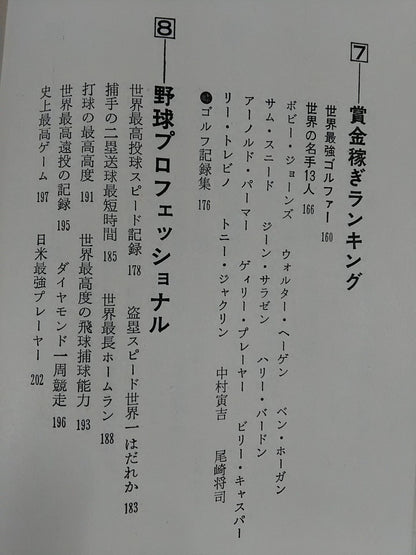 7―賞金稼ぎランキング
世界最強ゴルファー 160
世界の名手13人 166
ボビー・ジョーンズ ウォルター・ヘーゲン ベン・ホーガン
サム・スニード ジーン・サラゼン ハリー・バードン
アーノルド・パーマー ゲィリー・プレーヤー ビリー・キャスパー
リー・トレビノ トニー・ジャクリン 中村寅吉 尾崎将司
●ゴルフ記録集 176
8―野球プロフェッショナル
世界最高投球スピード記録 178 盗塁スピード世界一はだれか 183
捕手の二塁送球最短時間 185 世界最長ホームラン 188
打球の最高高度 191 世界最高度の飛球捕球能力 193
世界最高遠投の記録 195 ダイヤモンド一周競走 196
史上最高ゲーム 197 日米最強プレーヤー 202